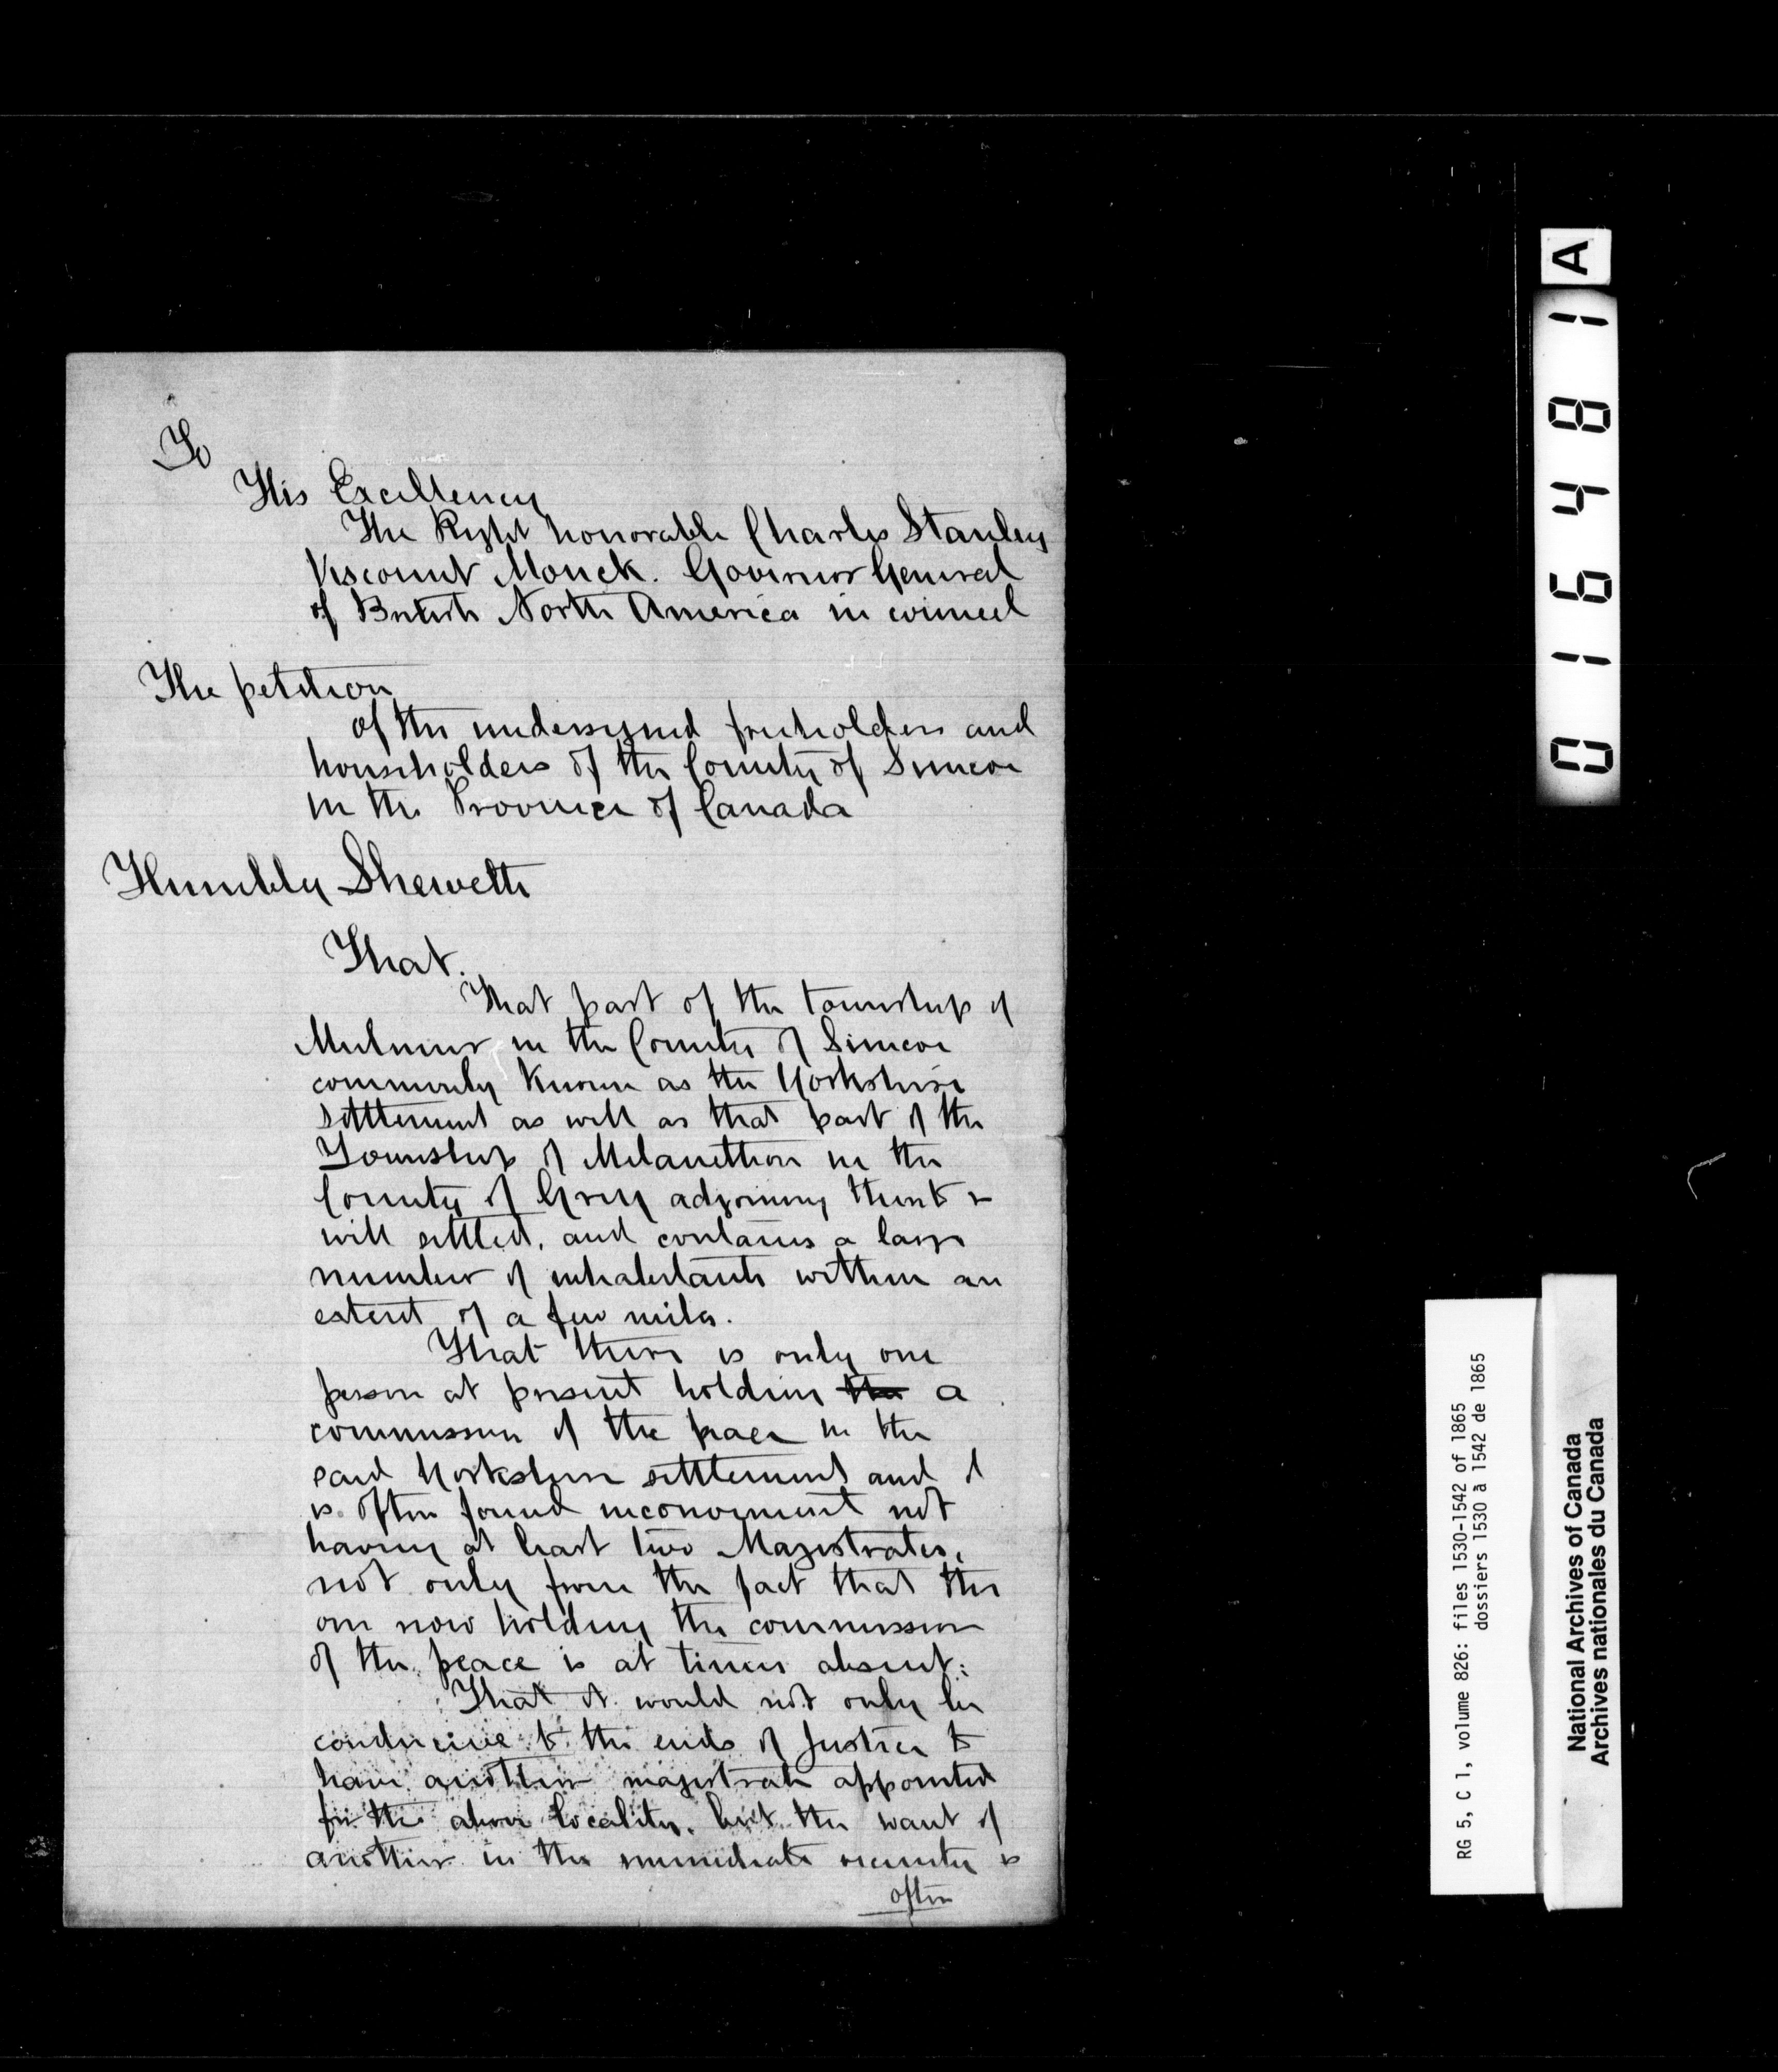 To
His Excellency
The Right honorable Charles Stanley
Viscount Monck. Governor General
of British North America in council
The petition
of the undersigned freeholders and
householders of the County of Simcoe
in the Province of Canada
Humbly Sheweth
That.
That part of the township of
Mulmur in the County of Simcoe
commonly known as the Yorkshire
settlement as well as that part of the
Township of Melancthon in the
County of Grey adjoining thereto is
well settled, and contains a large
number of inhabitants within an
extent of a few miles.
That there is only one
person at present holding the a
commission of the peace in the
said Yorkshire settlement and it
is often found inconvenient not
having at least two Magistrates,
not only from the fact that the
one now holding the commission
of the peace is at times absent:
That it would not only be
conducive to the ends of Justice to
have another magistrate appointed
for the above locality, but the want of
another in the immediate vicinity is
often
A
016481
RG 5, C 1, volume 826: files 1530-1542 of 1865
dossiers 1530 à 1542 de 1865
National Archives of Canada
Archives nationales du Canada